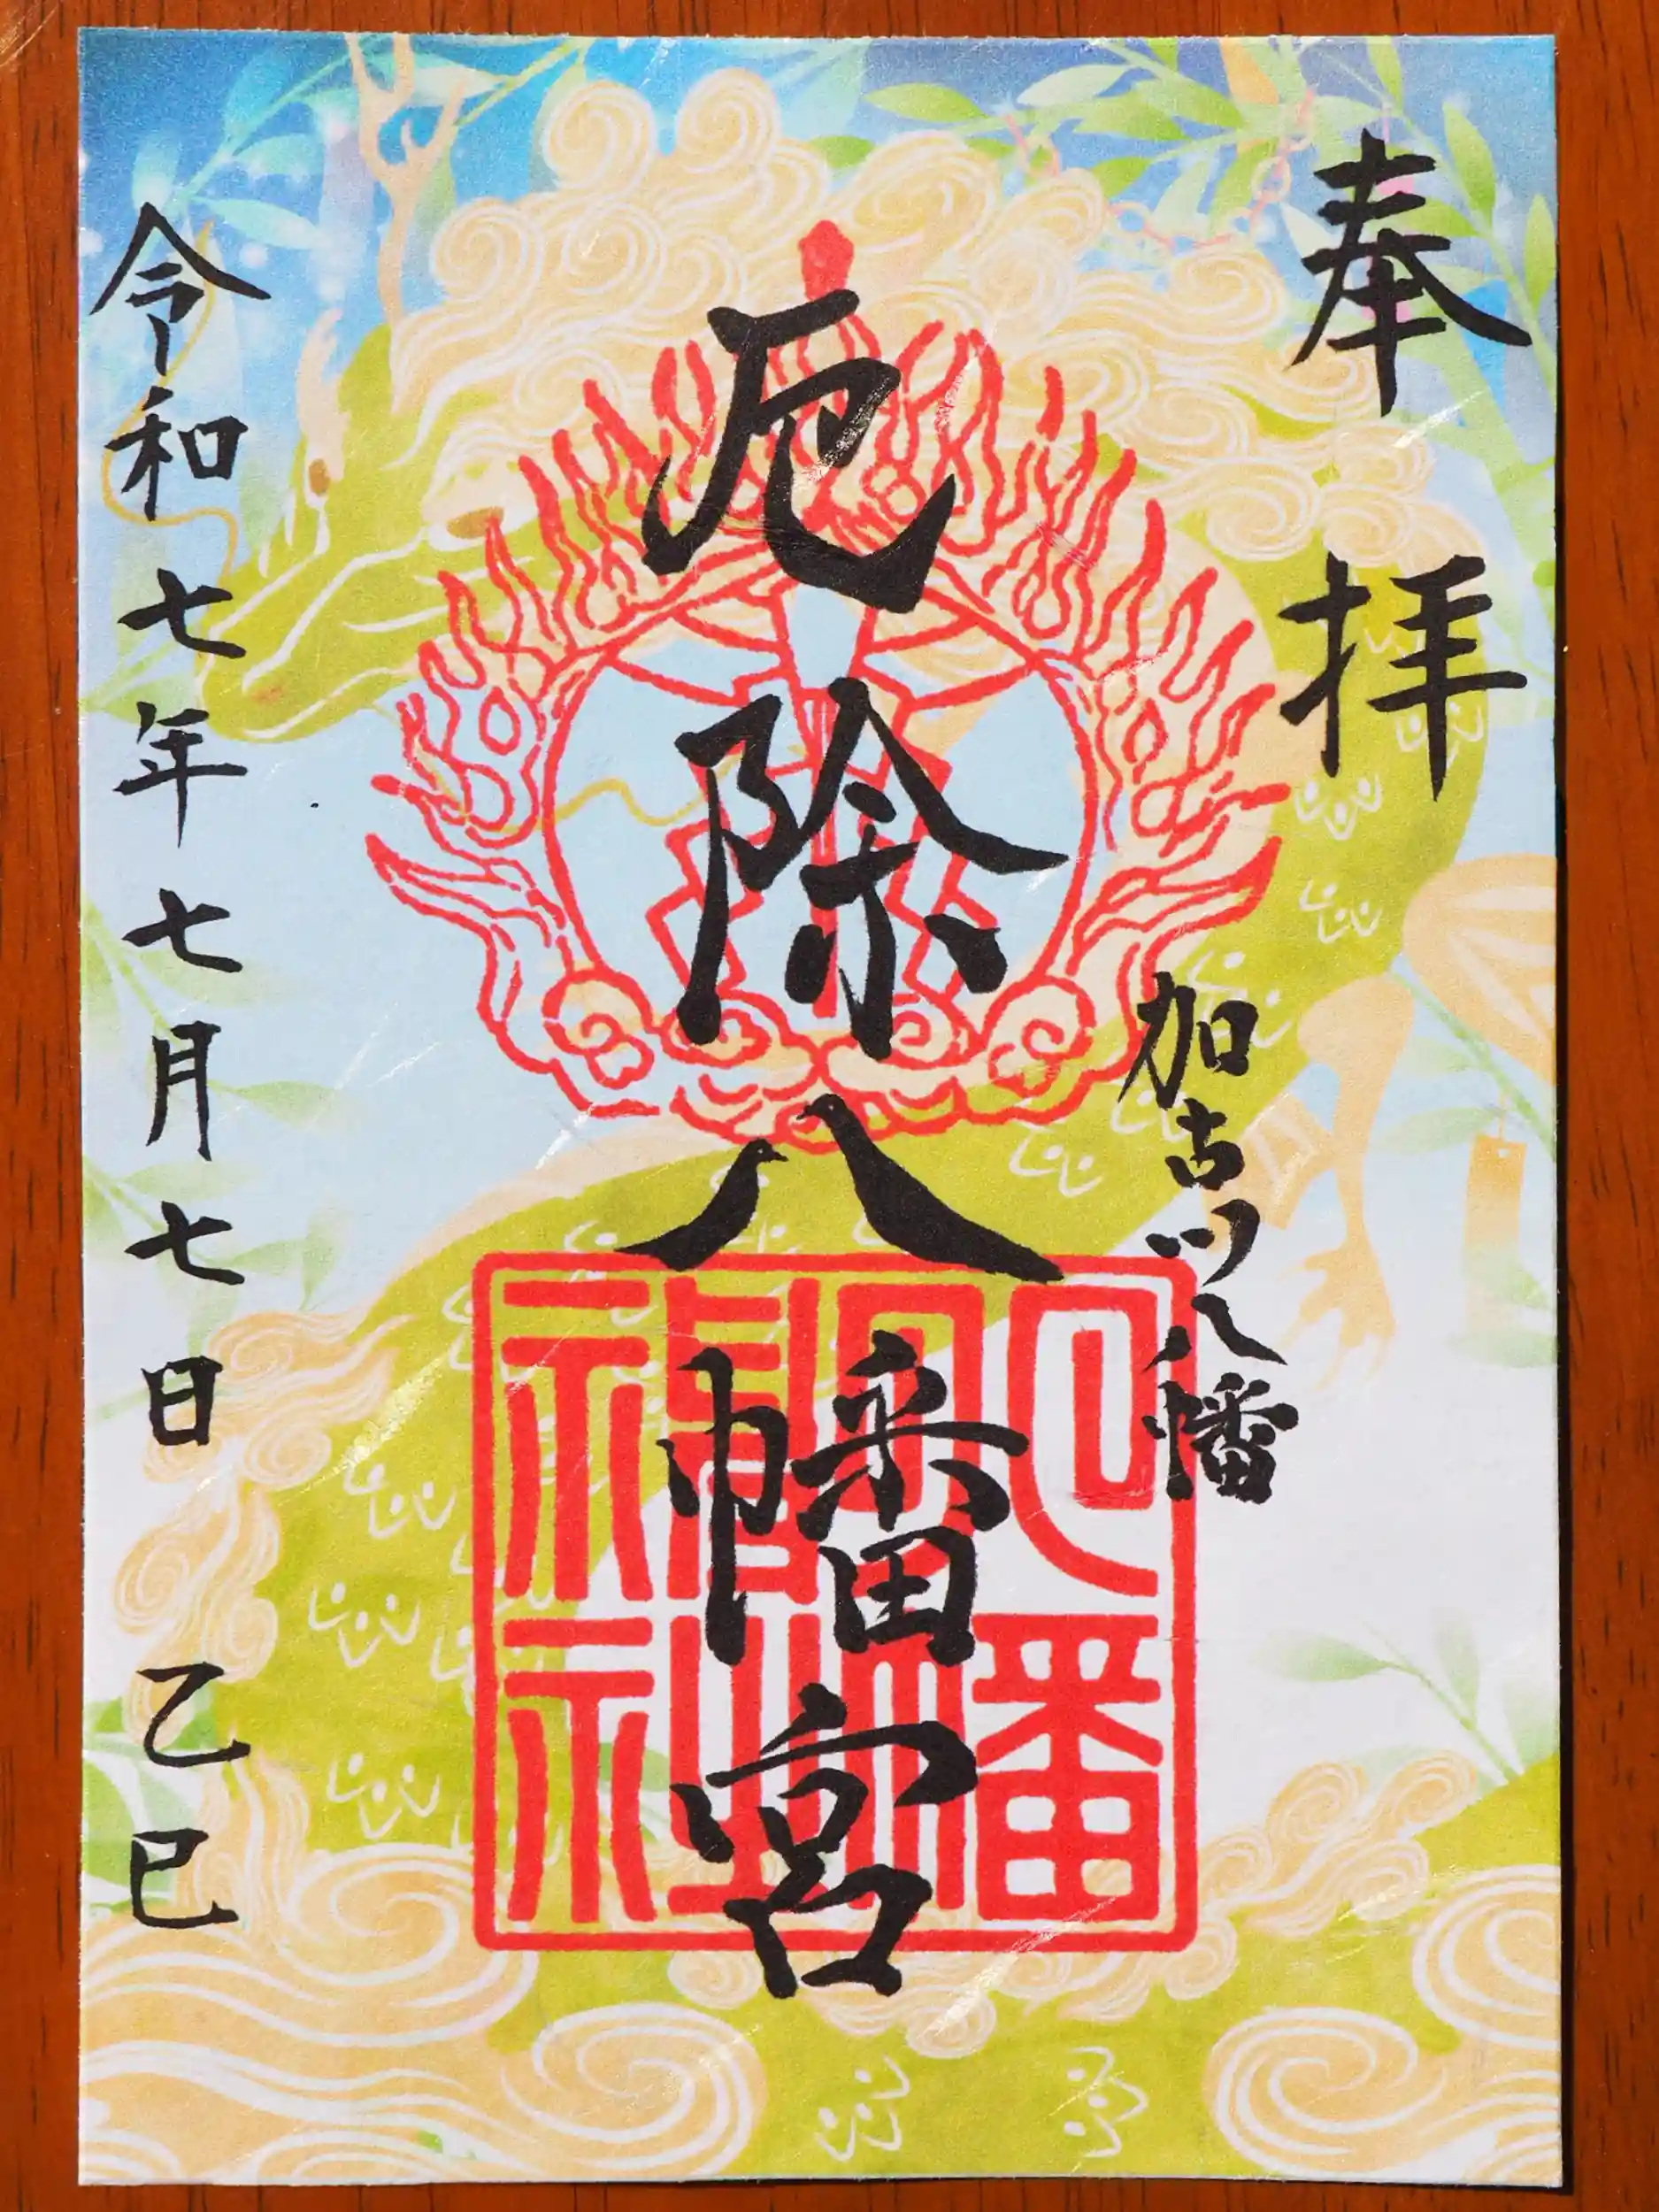 奉拝
加古川八幡
厄除八幡宮
令和七年七月七日 乙巳